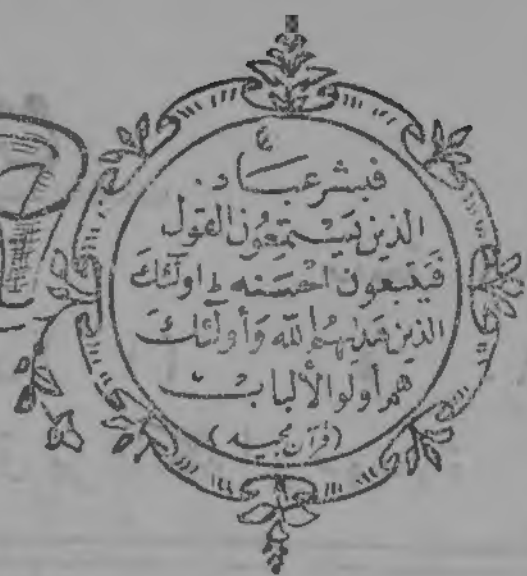 فبشر عباد
الذين يستمعون القول
فيتبعون أحسنه ط اولٓئك
الذين هداهم الله وأولٓئك
هم أولوا الألباب
(قرآن مجيد)